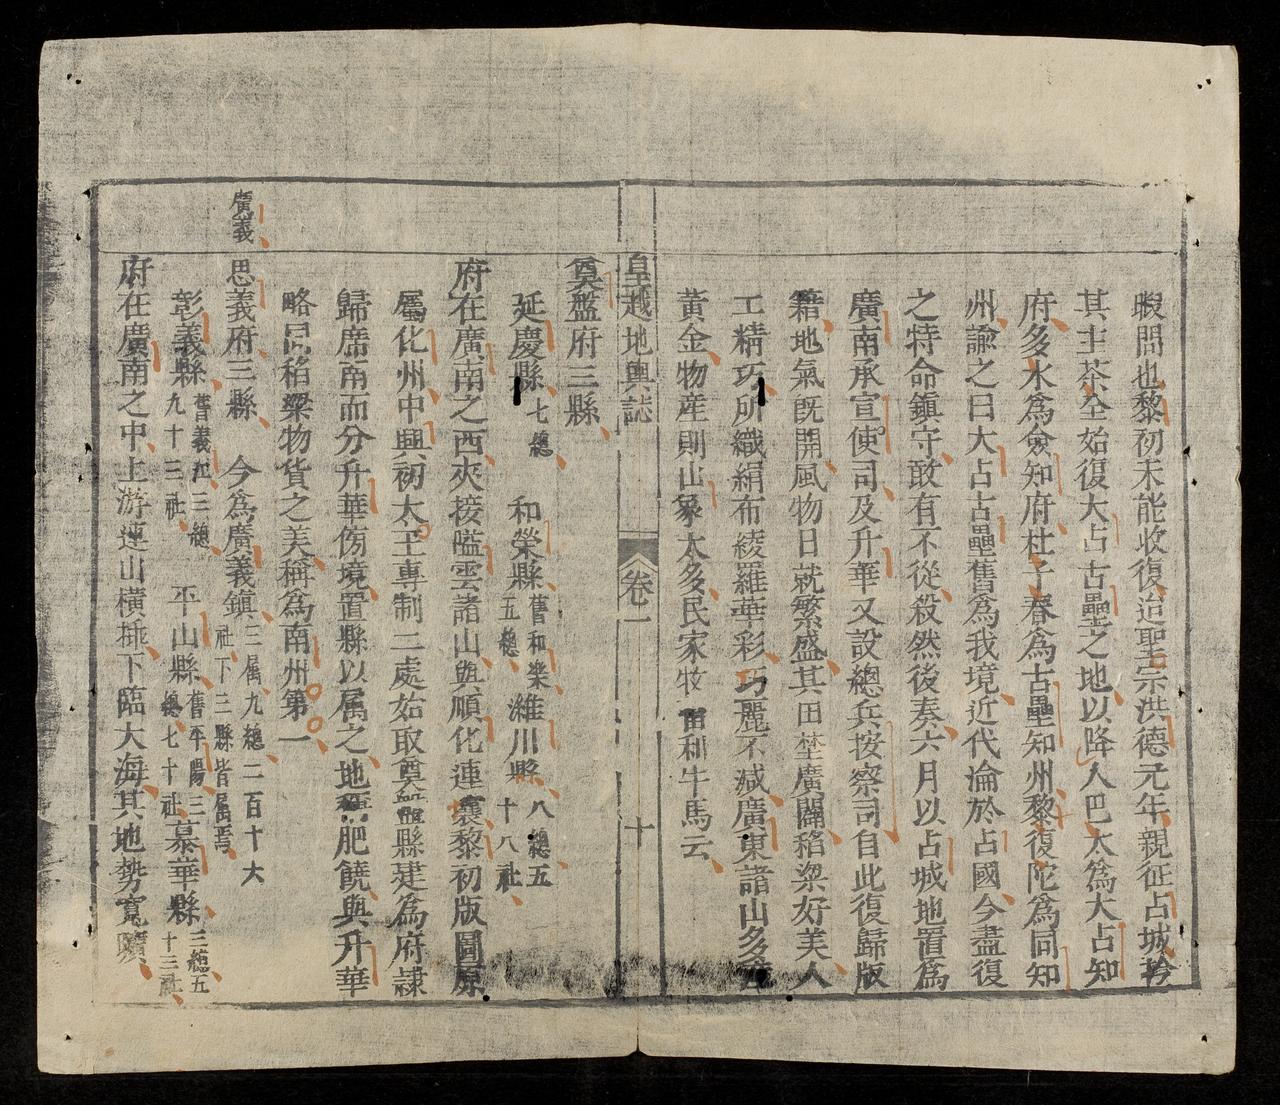 暇問也黎初未能收復迨聖宗洪德元年親征占城擒
其主茶全始復大占古壘之地以降人巴太為大占知
府多水為僉知府杜子春為古壘知州黎復陀為同知
州諭之曰大占古壘舊為我境近代淪於占國今盡復
之特命鎮守敢有不從殺然後奏六月以占城地置為
廣南承宣使司及升華又設總兵按察司自此復歸版
籍地氣既開風物日就繁盛其田埜廣闊稻粱好美人
工精巧所織絹布綾羅華彩巧麗不減廣東諸山多產
黃金物產則山象太多民家牧畜利牛馬云
皇越地輿誌 卷一 十
奠盤府三縣
延慶縣七總 和榮縣舊和樂五總 濰川縣八總五十八社
府在廣南之西夾接嗌雲諸山與順化連壤黎初版圖原
屬化州中興初太王專制二處始取奠盤縣建為府隸
歸廣南而分升華傍境置縣以属之地種肥饒與升華
略同稻粱物貨之美稱為南州第一
廣義
思義府三縣 今為廣義鎮三属九總二百十大社下三縣皆属焉
彰義縣舊義江三總九十三社 平山縣舊平陽三總七十社 慕華縣三總五十三社
府在廣南之中上游連山橫排下臨大海其地勢寬曠